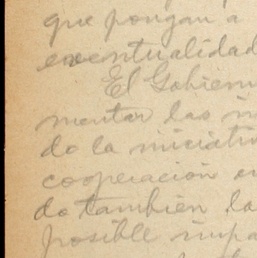 que pongan a
eventualidad
El Gobiern
mentar las m
do la iniciativ
cooperación en
do también la
posible impa